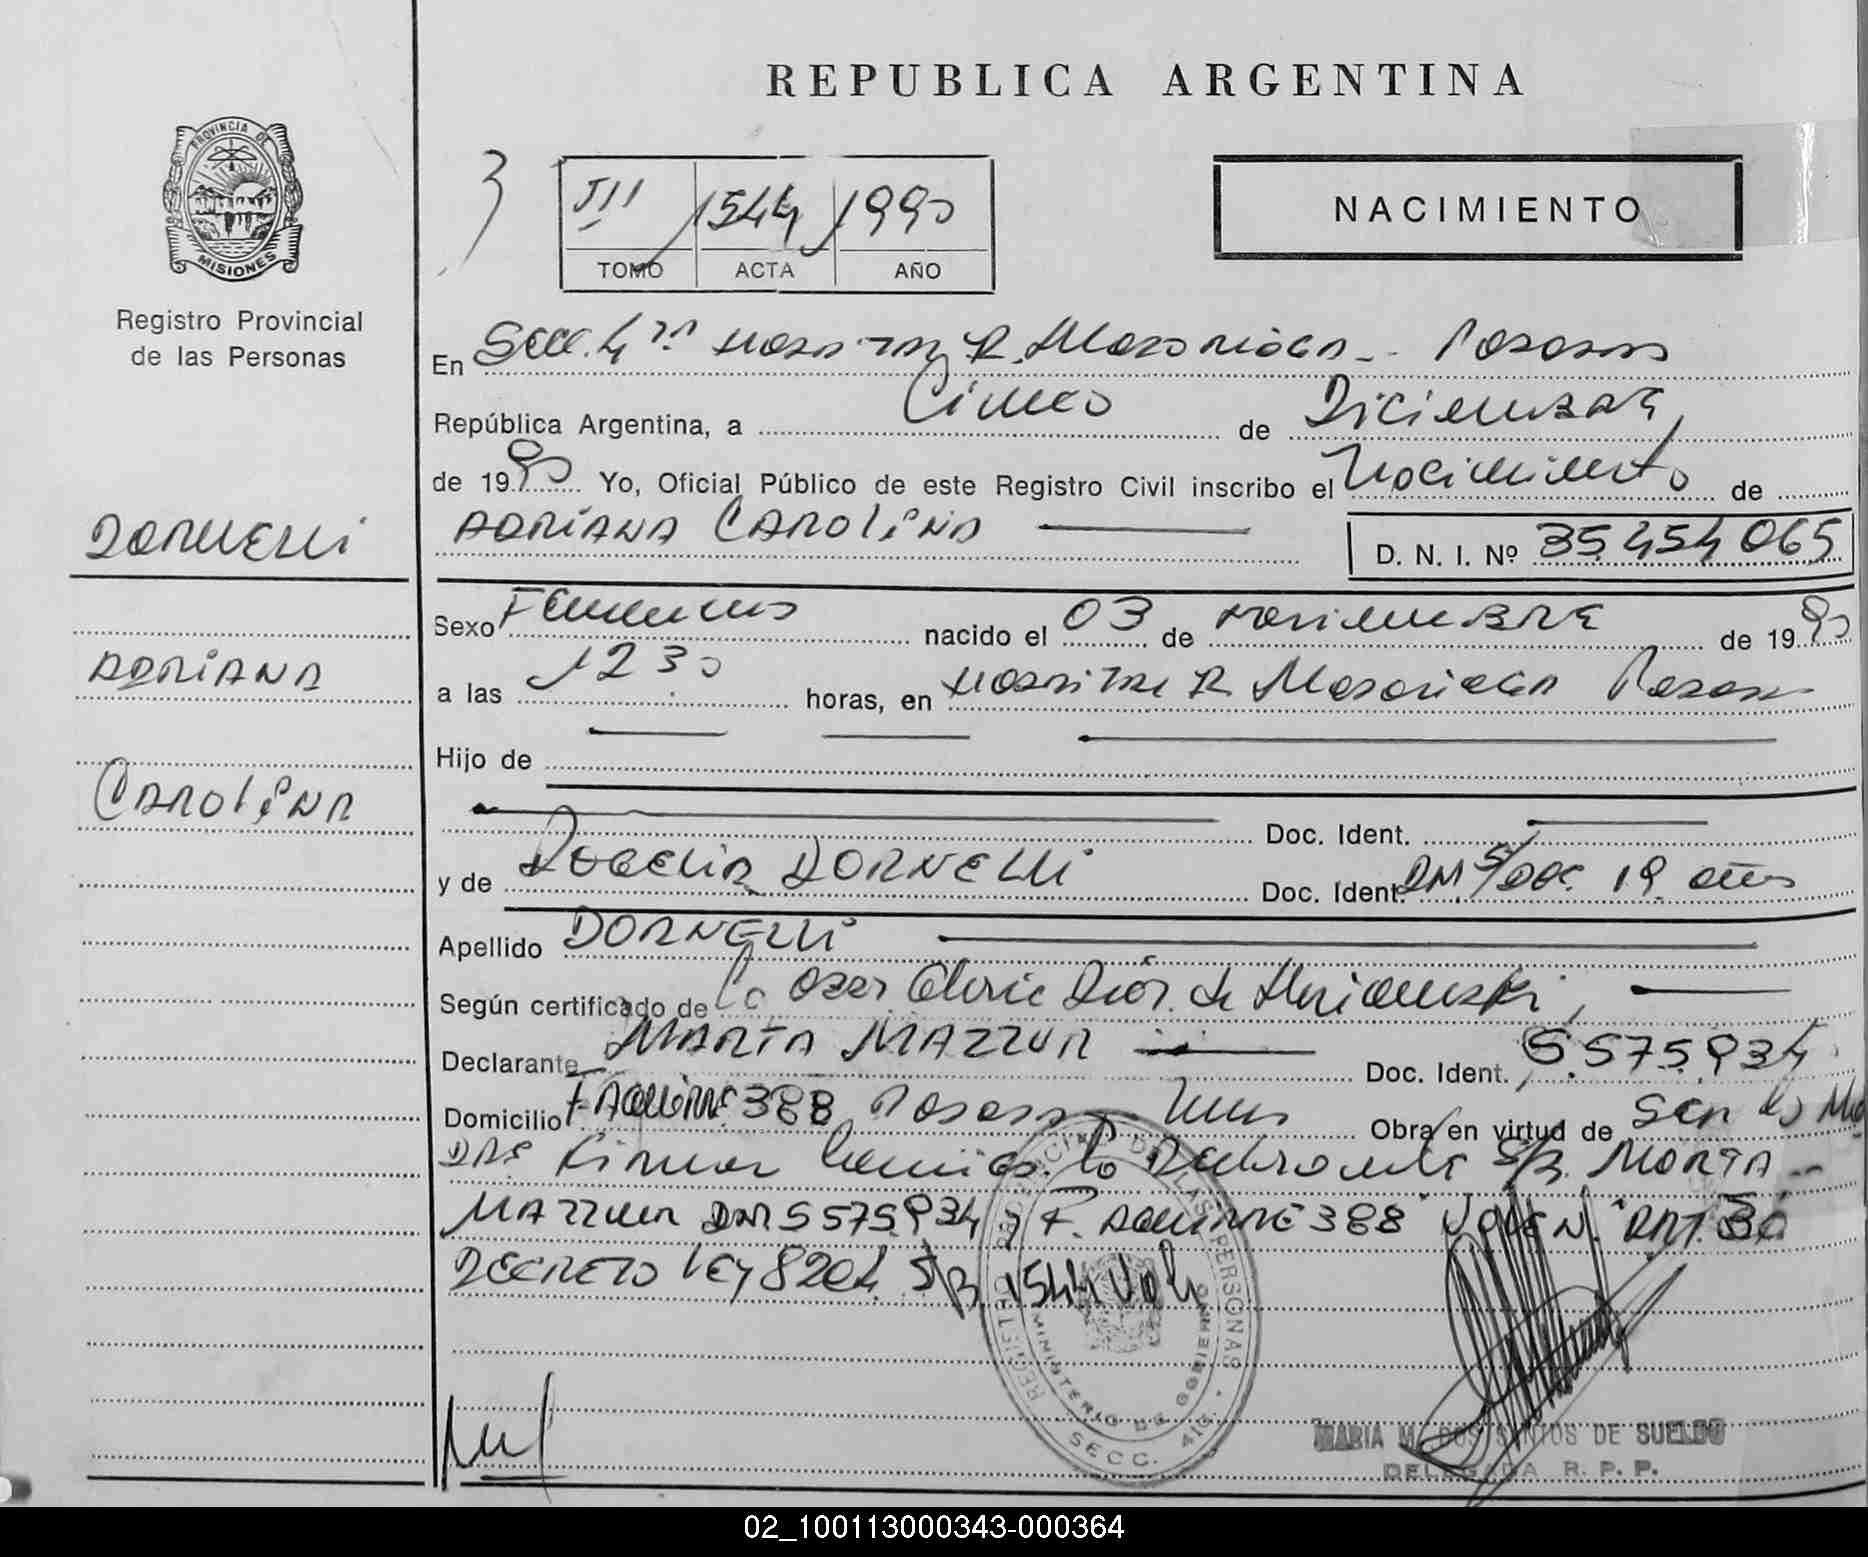 REPUBLICA ARGENTINA
PROVINCIA DE
MISIONES
Registro Provincial
de las Personas
3
III 1544 1990
TOMO ACTA AÑO
NACIMIENTO
En Secc. 4ta Hospital R. Madariaga - Posadas
República Argentina, a Cinco de Diciembre,
de 1990 Yo, Oficial Público de este Registro Civil inscribo el Nacimiento de
DORNELLI
ADRIANA CAROLINA
D. N. I. Nº 35.454.065
Sexo Femenino nacido el 03 de Noviembre de 1990
ADRIANA
a las 1230 horas, en Hospital R Madariaga Posadas
Hijo de
CAROLINA
Doc. Ident.
y de ROGELIA DORNELLI Doc. Ident. DNI S/DOC. 19 años
Apellido DORNELLI
Según certificado de La de
Declarante MARTA MAZZUR Doc. Ident. 5.575.934
Domicilio F. AGUIRRE 388 Posadas Obra en virtud de Ser la Ma
DRE Firman la Declarante MARTA
MAZZUR DNI 5575934 y F. AGUIRRE 388 VALEN. ART. 30
DECRETO LEY 8204 S/R 1544 Vale
REGISTRO PROVINCIAL DE LAS PERSONAS
MINISTERIO DE GOBIERNO
SECC. 4ta.
MARIA M. DOS SANTOS DE SUELDO
DELEGADA R. P. P.
02_100113000343-000364